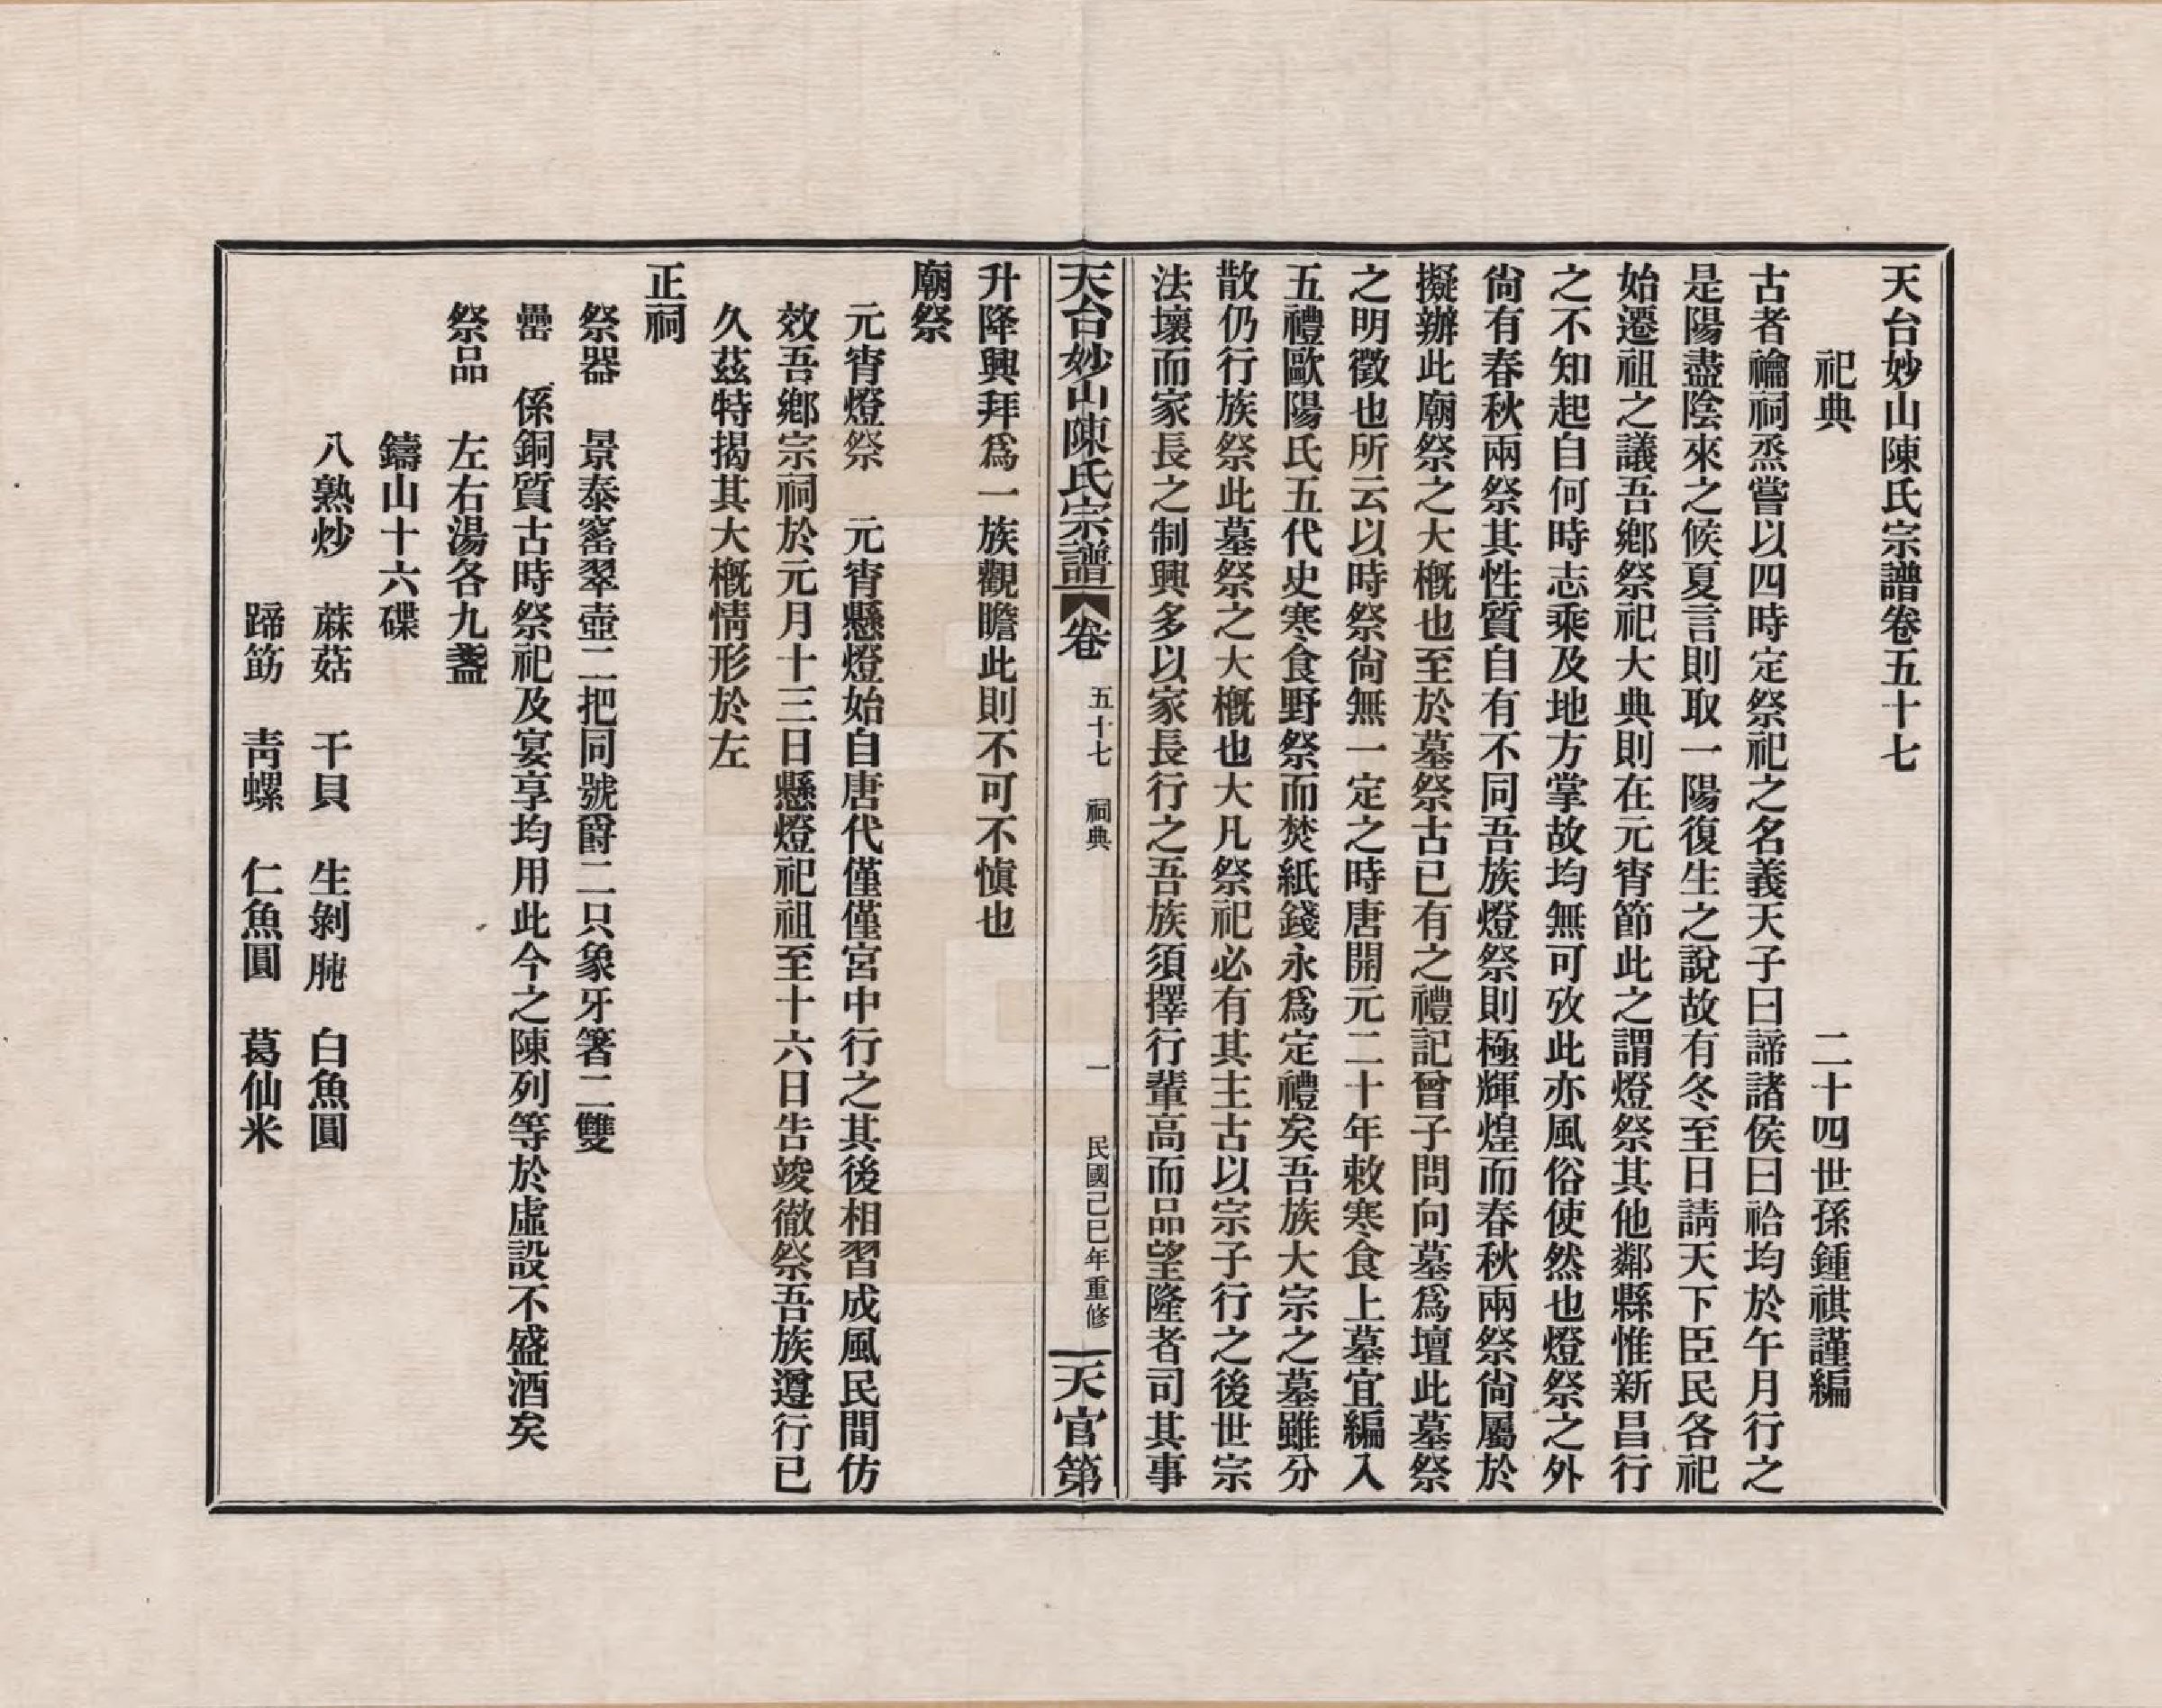 天台妙山陳氏宗譜卷五十七
祀典　二十四世孫鍾祺謹編
古者禴祠烝嘗以四時定祭祀之名義天子曰諦諸侯曰祫均於午月行之
是陽盡陰來之候夏言則取一陽復生之說故有冬至日請天下臣民各祀
始遷祖之議吾鄉祭祀大典則在元宵節此之謂燈祭其他鄰縣惟新昌行
之不知起自何時志乘及地方掌故均無可攷此亦風俗使然也燈祭之外
尙有春秋兩祭其性質自有不同吾族燈祭則極輝煌而春秋兩祭尙屬於
擬辦此廟祭之大槪也至於墓祭古已有之禮記曾子問向墓爲壇此墓祭
之明徵也所云以時祭尙無一定之時唐開元二十年敕寒食上墓宜編入
五禮歐陽氏五代史寒食野祭而焚紙錢永爲定禮矣吾族大宗之墓雖分
散仍行族祭此墓祭之大槪也大凡祭祀必有其主古以宗子行之後世宗
法壞而家長之制興多以家長行之吾族須擇行輩高而品望隆者司其事
天台妙山陳氏宗譜　卷　五十七　祠典　一　民國己巳年重修　天官第
升降興拜爲一族觀瞻此則不可不愼也
廟祭
元宵燈祭　元宵懸燈始自唐代僅僅宮中行之其後相習成風民間仿
效吾鄉宗祠於元月十三日懸燈祀祖至十六日告竣徹祭吾族遵行已
久茲特揭其大槪情形於左
正祠
祭器　景泰窰翠壺二把同號爵二只象牙箸二雙
罍　係銅質古時祭祀及宴享均用此今之陳列等於虛設不盛酒矣
祭品　左右湯各九盞
鑄山十六碟
八熟炒　蔴菇　干貝　生剝肫　白魚圓
蹄筯　靑螺　仁魚圓　葛仙米